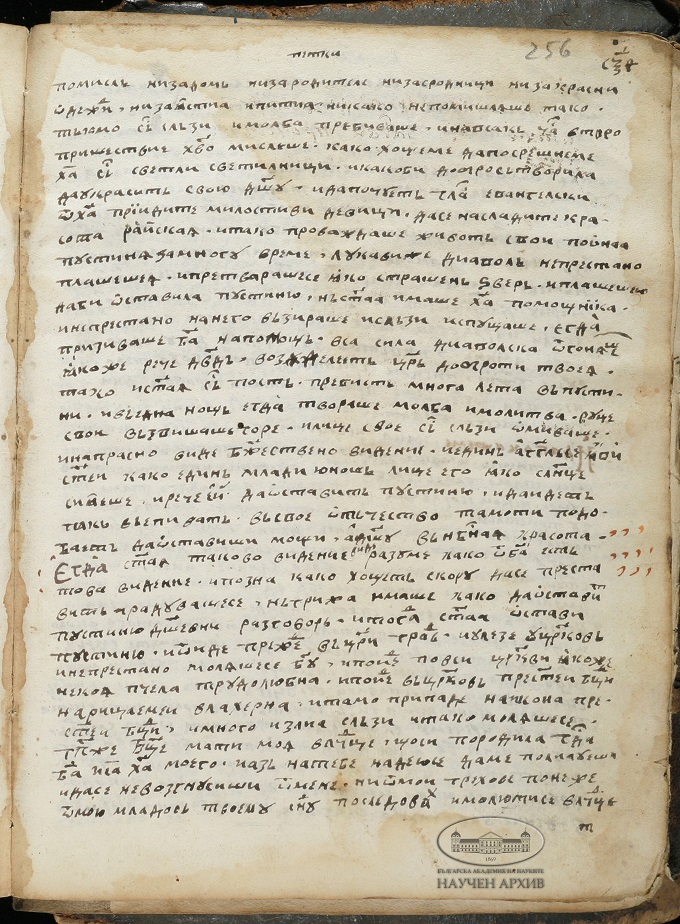 петки
256
помисль низадомь низародителе низасродници низакрасни
ѿдежди, низаӕстиа ипитиа, никако непомишлꙗше тако.
тькмо съ сльзи имолба пребиваше. инапсакь ча второ
пришествие хво мислеше. како хощеме дапосрещнеме
ха съ светли светилници. икакови добросьтворила
даукрасить свою дшу. идапочуеть гла евангелски
ѿха прїидите милостиви девици. дасе насладите кра-
сота райская. итако проваждаше животь свои поинаа
пустиня замногу време, лукавиже диаволь непрестано
плашешея. ипретварашесе ꙗко страшень ѕверь. иплашешею
даби ѿставила пустиню, ньстаа имаше ха помощника.
инепрестано нанего вьзираше исльзи испущаше, егда
призиваше ба напомощь. вса сила диаволска ѿгонаше
ꙗкоже рече двдь. возжделеть црь доброти твоея.
тако истая съ пость. пребисть многа лета вьпусти-
ни. ивьедна нощь егда твораше молба имолитва. руце
свои вьзвишашь горе. илице свое съ сльзи ѿмиваше.
инапрасно виде бжествено видение. иединь агглье
стеи како единь млади юношь лице его ꙗко слнце
сиꙗеше. иречееи даѿставить пустиню, идаидеть
пакь вьепивать. вьсвое ѿтьчество тамоти подо-
баеть даѿставиши мощи, адшу вьнбная красота
Егда стая таково видение виде разуме како ѿба есть
това видение. ипозна како хощеть скору дасе преста
вить ирадувашесе, ньгрижа имаше како даѿстави
пустиню дшевни разговорь. итога стая ѿстави
пустиню. иѿиде прїжде вьцри град. иулезе уцрковь
инепрестано молꙗшесе бгу, ипоиде повси цркви ꙗкоже
некоя пчела трудолюбна. ипоиде вьцрковь престеи бци
нарицаемеи влахерна, итамо припаде накона пре-
стеи бци, имного излиа сльзи итако молꙗшесе.
гпже бце мати моя влчце, щоси породила гда
ба иса ха моего. иазь натебе надеюсе даме помилуеши
идасе невозгнусиши ѿмене. ниѿмои грехове понеже
ѿмою младось твоему сну последовах имолютисе влчце
т
БЪЛГАРСКА АКАДЕМИЯ НА НАУКИТЕ
1869
НАУЧЕН АРХИВ